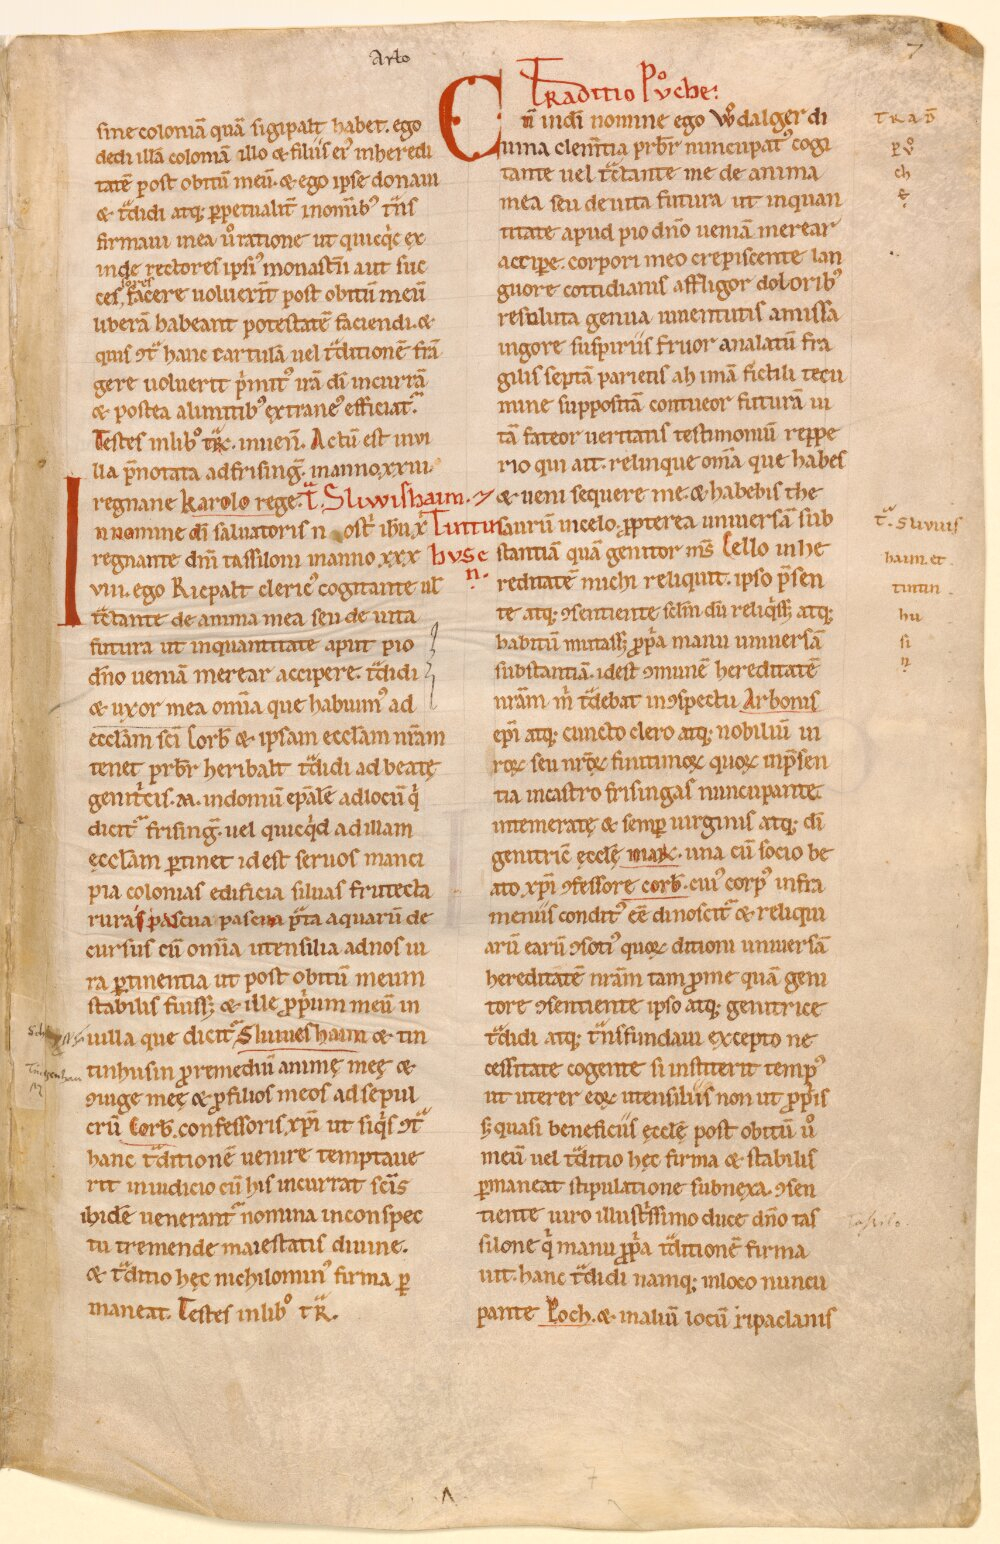 Arbo
7
sine coloniā quā sigipalt habet. ego
dedi illā coloniā illo & filiis ei᷒ inheredi
tatē post obitū meū. & ego ipse donaui
& t͛didi atq; ꝑpetualit͛ inomīb᷒ t͛iis
firmaui mea u͛ratione ut quicq̇c ex
inde rectores ipsi᷒ monast͛ii aut suc
ces,sores facere uoluerīt post obitū meū
liberā habeant potestatē faciendi. &
quis ↄt͛ hanc cartulā uel t͛ditionē frā
gere uoluerit p͛mit᷒ irā dī incurrā
& postea alimitib᷒ extrane᷒ efficiat͛.
Testes inlib᷒ t͛ꝶc. inueń. Actū est inui
lla p̄notata adfrising̃. inanno.xxiii.
regnane karolo rege. T͛. Sliwishaim. ⁊
Tintun
husc
n.
In nomine dī saluatoris nostr͛ ih͞u x͛
regnante dn̄i tassiloni inanno xxx
viii. ego Ricpalt cleric᷒ cogitante ul̄
t͛ctante de anima mea seu de uita
futura ut inquantitate aput pio
dn̄o ueniā merear accipere. t͛didi
& uxor mea om̄ia que habuim᷒ ad
eccl̄am sc̄i Corb̄ & ipsam eccl̄am nr̄am
tenet prb̄r heribalt t͛didi ad beatę
genit͛cis .M. indomū ep̄alē adlocū q̇
dicit͛ frising̃. uel quicq̇d ad illam
ęccl̄am ꝑtinet id est seruos manci
pia colonias edificia siluas frutecta
rura pascua pascua p͛ta aquarū de
cursus cū om̄ia utensilia adnos iu
ra ꝑtinentia ut post obitū meum
stabilis fuiss; & ille ꝓp͛um meū in
uilla que dicit͛ Sliuueshaim & tin
tinhusin ꝓremediū animę meę &
ↄiuge meę & ꝓfilios meos ad sepul
crū Corb̄. confessoris xp̄i ut siq̇s ↄt͛
hanc t͛ditionē uenire temptaue
rit iniudicio cū his incurrat sc̄is
ibidē uenerant͛ nomina inconspec
tu tremende maiestatis diuine.
& t͛ditio hęc nichilomin᷒ firma ꝑ
maneat. Testes inlib᷒ t͛ꝶ.
Traditio Pͦuche:
En̄ in dei nomine ego Wͦdalger di
uina clem̄tia prb̄r nuncupat᷒ cogi
tante uel t͛ctante me de anima
mea seu de uita futura ut inquan
titate apud pio dn̄o ueniā merear
accipe. corpori meo crepiscente lan
guore cottidianis affligor dolorib᷒
resoluta genua iuuentutis amissa
uigore suspiriis fruor analatū fra
gilis septā parietis ab imā fictili tecu
mine suppositā contueor futurā ui
tā fateor ueritatis testimoniū reppe
rio qui ait. relinque om̄ia que habes
& ueni sequere me. & habebis the
saurū incelo. ꝓpterea uniuersā sub
stantiā quā genitor m̄s Cello inhe
reditatē michi reliquit. ipso p̄sen
te atq; ↄsentiente sclm̄ dū reliq̇ss; atq;
habitū mutass; ꝓp͛a manu uniuersā
substantiā. id est ↄmunē hereditatē
nr̄am m̄ t͛debat inↄspectu Arbonis
ep̄i atq; cuncto clero atq; nobiliū ui
roꝝ seu nr̄oꝝ finitimoꝝ quoꝝ inp̄sen
tia incastro frisingas nuncupante.
intemeratę & semp̄ uirginis atq; dī
genitric̄ ęccl̄ę maꝝ. una cū socio be
ato xp̄i ↄfessore corb̄. cui᷒ corp᷒ infra
meniis condit᷒ eē dinoscit͛ & reliqui
arū earū ↄsoti᷒ quoꝝ ditioni uniuersā
hereditatē nr̄am tam ꝓme quā geni
tore ↄsentiente ipso atq; genitrice
t͛didi atq; t͛nsfundaui excepto ne
cessitate cogente si institerit temp᷒
ut uterer eoꝝ utensiliis non ut ꝓp͛is
s; quasi beneficiis ęcclę post obitū uͦ
meū uel t͛ditio hęc firma & stabilis
ꝑmaneat stipulatione subnexa. ↄsen
tiente uiro illust͛ssimo duce dn̄o tas
silone q̇ manu ꝓp͛a t͛ditionē firma
uit. hanc t͛didi namq; inloco nuncu
pante Poch. & inaliū locū ripaclanis
TRAD̄
pͦv
ch
ē.
T͛. Sliuuis
haim. et
tintin
hu
si
n̄.
Tassilo.
7